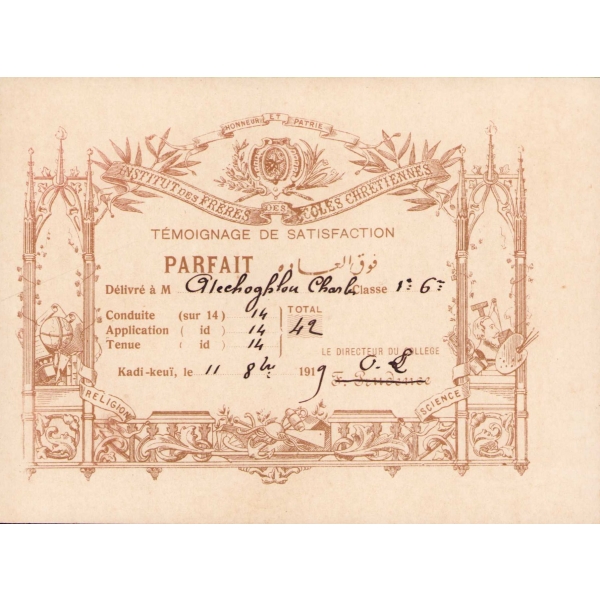 HONNEUR ET PATRIE
INSTITUT DES FRÈRES DES ÉCOLES CHRÉTIENNES
TÉMOIGNAGE DE SATISFACTION
PARFAIT فوق العاده
Délivré à M Alechoghlou Charles Classe 1e 6e
Conduite (sur 14) 14 TOTAL
Application ( id ) 14 42
Tenue ( id ) 14
LE DIRECTEUR DU COLLEGE
Kadi-keuï, le 11 8bre 1919
RELIGION
SCIENCE